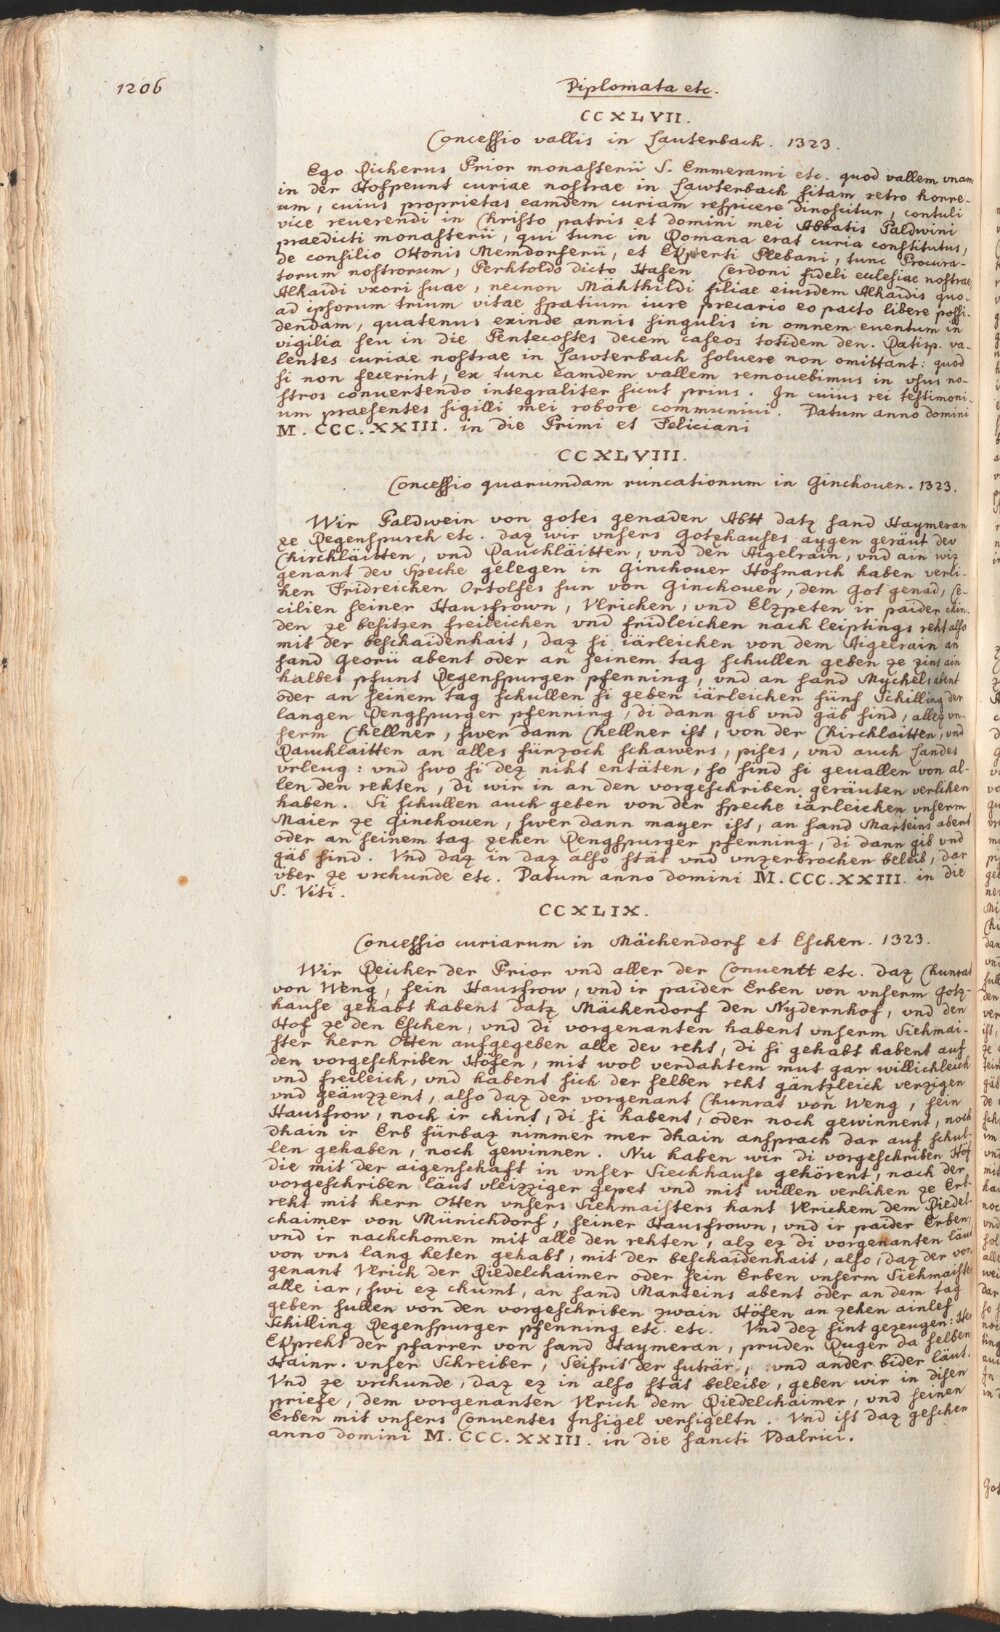 1206
Diplomata etc.
CCXLVII.
Concessio vallis in Lauterbach. 1323.
Ego Richerus Prior monasterii S. Emmerami etc. quod vallem vnam
in der Hofpeunt curiae nostrae in Lawterbach sitam retro horre-
um, cuius proprietas eamdem curiam respicere dinoscitur, contuli
vice reuerendi in Christo patris et domini mei Abbatis Baldwini
praedicti monasterii, qui tunc in Romana erat curia constitutus,
de consilio Ottonis Memdorferii, et Ekperti Plebani, tunc Procura-
torum nostrorum, Perhtoldo dicto Hasen Cerdoni fideli eclesiae nostrae,
Alhaidi vxori suae, necnon Mähthildi filiae eiusdem Alhaidis quo-
ad ipsorum trium vitae spatium iure precario eo pacto libere possi-
dendam, quatenus exinde annis singulis in omnem euentum in
vigilia seu in die Pentecostes decem caseos totidem den. Ratisp. va-
lentes curiae nostrae in Lawterbach soluere non omittant: quod
si non fecerint, ex tunc eamdem vallem remouebimus in vsus no-
stros conuertendo integraliter sicut prius. In cuius rei testimoni-
um praesentes sigilli mei robore communiui. Datum anno domini
M. CCC. XXIII. in die Primi et Feliciani
CCXLVIII.
Concessio quarumdam runcationum in Ginchouen. 1323.
Wir Baldwein von gotes genaden Abtt datz sand Haymeran
ze Regenspurch etc. daz wir vnsers Gotzhauses aygen geräut dev
Chirchläitten, vnd Rauchläitten, vnd den Aigelrain, vnd ain wis
genant dev Specke gelegen in Ginchouer Hofmarch haben verli-
hen Fridreichen Ortolfes sun von Ginchouen, dem Got genad, Ce-
cilien seiner Hausfrown, Vlrichen, vnd Elzpeten ir paider chin-
den ze besitzen freileichen vnd fridleichen nach leiptings reht also
mit der beschaidenhait, daz si iärleichen von dem Aigelrain an
sand Georii abent oder an seinem tag schullen geben ze zins ain
halbes pfunt Regenspurger pfenning, vnd an sand Mychels abent
oder an seinem tag schullen si geben iärleichen fünf Schilling der
langen Rengspurger pfenning, di dann gib vnd gäb sind, alles vn-
serm Chellner, swer dann Chellner ist, von der Chirchlaitten, vnd
Rauchlaitten an alles fürzoch schawers, pises, vnd auch Landes
vrleug: vnd swo si dez niht entäten, so sind si geuallen von al-
len den rehten, di wir in an den vorgeschriben geräuten verlihen
haben. Si schullen auch geben von der specke iärleichen vnserm
Maier ze Ginchouen, swer dann mayer ist, an sand Marteins abent
oder an seinem tag zehen Rengspurger pfenning, di dann gib vnd
gäb sind. Vnd daz in daz also stät vnd vnzerbrochen beleib, dar
über ze vrchunde etc. Datum anno domini M. CCC. XXIII. in die
S. Viti.
CCXLIX.
Concessio curiarum in Mächendorf et Eschen. 1323.
Wir Reicher der Prior vnd aller der Conuentt etc. daz Chunrat
von Weng, sein Hausfrow, vnd ir paider Erben von vnserm Gotz-
hause gehabt habent datz Mächendorf den Nydernhof, vnd den
Hof ze den Eschen, vnd di vorgenanten habent vnserm Siehmai-
ster hern Otten aufgegeben alle dev reht, di si gehabt habent auf
den vorgeschriben Höfen, mit wol verdahtem mut gar willichleich
vnd freileich, vnd habent sich der selben reht gäntzleich verzigen
vnd geäuzzent, also daz der vorgenant Chunrat von Weng, sein
Hausfrow, noch ir chint, di si habent, oder noch gewinnent, noch
dhain ir Erb fürbaz nimmer mer dhain ansprach dar auf schul-
len gehaben, noch gewinnen. Nu haben wir di vorgeschriben Höf
die mit der aigenschaft in vnser Siechhause gehörent, nach der
vorgeschriben läut vleizziger gepet vnd mit willen verlihen ze Erb-
reht mit hern Otten vnsers Siehmaisters hant Vlrichem dem Riedel-
chaimer von Münichdorf, seiner Hausfrown, vnd ir paider Erben,
vnd ir nachchomen mit alle den rehten, alz ez di vorgenanten läut
von vns lang heten gehabt, mit der beschaidenhait, also, daz der vor-
genant Vlrich der Riedelchaimer oder sein Erben vnserm Siehmaister
alle iar, swi ez chumt, an sand Marteins abent oder an dem tag
geben sullen von den vorgeschriben zwain Höfen an zehen ainlef
Schilling Regenspurger pfenning etc. etc. Vnd dez sint gezeugen: Her
Ekpreht der pfarrer von sand Haymeran, pruder Ruger da selben
Hainr. vnser Schreiber, Seifrit der futrär, vnd ander bider läut.
Vnd ze vrchunde, daz ez in also stät beleibe, geben wir in disen
priefe, dem vorgenanten Vlrich dem Riedelchaimer, vnd seinen
Erben mit vnsers Conuentes Insigel versigeltn. Vnd ist daz geschehen
anno domini M. CCC. XXIII. in die sancti Vdalrici.